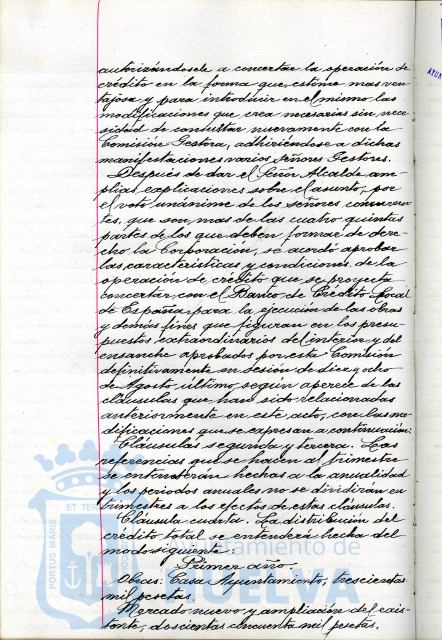 autorizándosele a concertar la operación de
crédito en la forma que estime mas ven-
tajosa y para introducir en el mismo las
modificaciones que crea necesarias sin nece-
sidad de consultar nuevamente con la
Comisión Gestora, adhiriéndose a dichas
manifestaciones varios Señores Gestores.
Después de dar el Señor Alcalde am-
plias explicaciones sobre el asunto, por
el voto unánime de los señores concurren-
tes, que son mas de las cuatro quintas
partes de los que deben formar de dere-
cho la Corporación, se acordó aprobar
las características y condiciones de la
operación de crédito que se proyecta
concertar con el Banco de Crédito Local
de España para la ejecución de las obras
y demás fines que figuran en los presu-
puestos extraordinarios del interior y del
ensanche aprobados por esta Comisión
definitivamente en sesión de diez y ocho
de Agosto último, según aparece de las
cláusulas que han sido relacionadas
anteriormente en este acto, con las mo-
dificaciones que se expresan a continuación:
Cláusulas segunda y tercera. Las
referencias que se hacen al trimestre
se entenderán hechas a la anualidad
y los periodos anuales no se dividirán en
trimestres a los efectos de estas cláusulas.
Cláusula cuarta. La distribución del
crédito total se entenderá hecha del
modo siguiente:
Primer año.
Obras: Casa Ayuntamiento, trescientas
mil pesetas.
Mercado nuevo y ampliación del exis-
tente, doscientas cincuenta mil pesetas.
Ayuntamiento de
HUELVA
PORTUS MARIS
ET TER